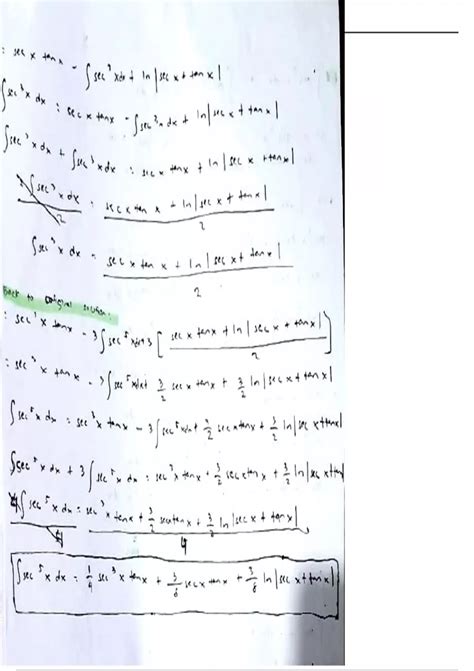 : sec x tan x - ∫sec³x dx + ln|sec x + tan x|
∫sec³x dx = sec x tan x - ∫sec³x dx + ln|sec x + tan x|
∫sec³x dx + ∫sec³x dx = sec x tan x + ln|sec x + tan x|
2∫sec³x dx / 2 = sec x tan x + ln|sec x + tan x| / 2
∫sec³x dx = sec x tan x + ln|sec x + tan x| / 2
Back to original
: sec³x tan x - 3∫sec⁵x dx + 3 [sec x tan x + ln|sec x + tan x| / 2]
: sec³x tan x - 3∫sec⁵x dx + 3/2 sec x tan x + 3/2 ln|sec x + tan x|
∫sec⁵x dx = sec³x tan x - 3∫sec⁵x dx + 3/2 sec x tan x + 3/2 ln|sec x + tan x|
∫sec⁵x dx + 3∫sec⁵x dx = sec³x tan x + 3/2 sec x tan x + 3/2 ln|sec x + tan
4∫sec⁵x dx / 4 = sec³x tan x + 3/2 sec x tan x + 3/2 ln|sec x + tan x| / 4
∫sec⁵x dx = 1/4 sec³x tan x + 3/8 sec x tan x + 3/8 ln|sec x + tan x|